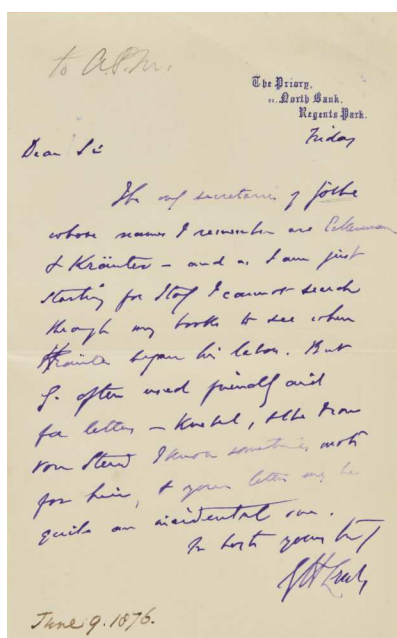 to A.P.M.
The Priory,
21. North Bank.
Regents Park.
Friday
Dear Sir
The only secretaries of Göthe
whose names I remember are Eckermann
& Kräuter – and as I am just
starting for I cannot search
through my books to see when
Kräuter began his labor. But
G. often used friendly aid
for letters – Knebel, & the Frau
von Stein I know sometimes wrote
for him, & your letter may be
quite an incidental one.
In haste yours truly
G H Lewes
June 9. 1876.